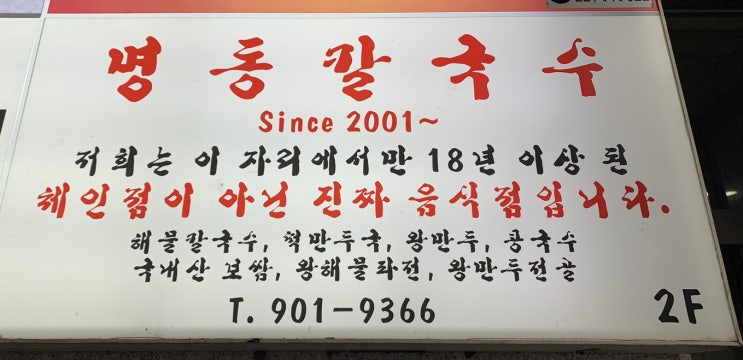 명동칼국수
Since 2001~
저희는 이 자리에서만 18년 이상 된
체인점이 아닌 진짜 음식점입니다.
해물칼국수, 떡만두국, 왕만두, 콩국수
국내산 보쌈, 왕해물파전, 왕만두전골
T. 901-9366
2F